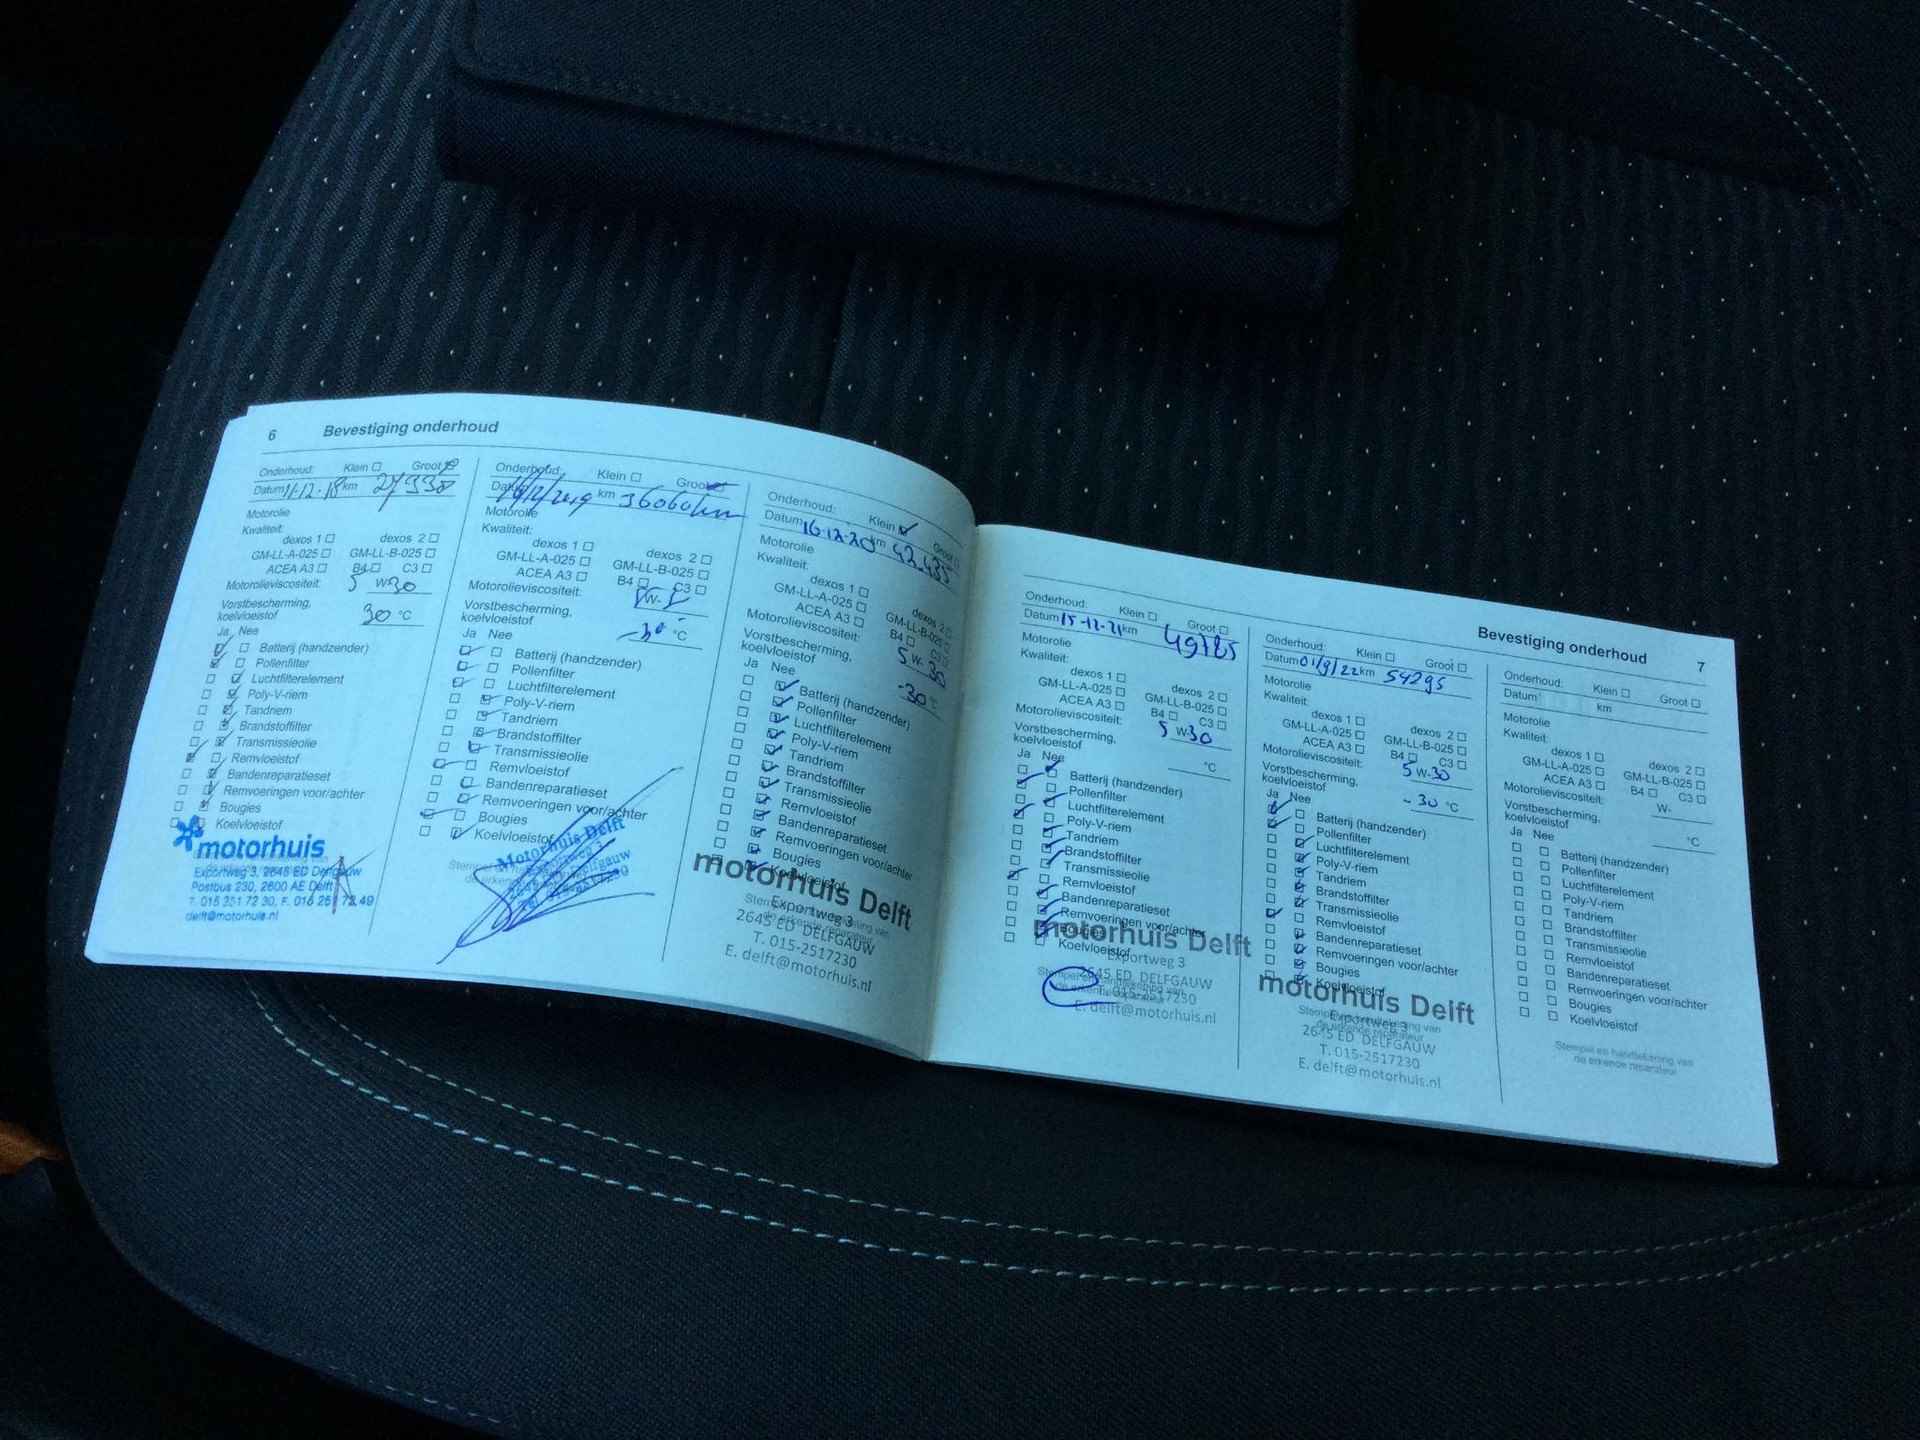 6 Bevestiging onderhoud
Onderhoud: Klein Groot
Datum 11-12-18 km 27930
Motorolie
Kwaliteit:
dexos 1 dexos 2
GM-LL-A-025 GM-LL-B-025
ACEA A3 B4 C3
Motorolieviscositeit: 5 W-30
Vorstbescherming,
koelvloeistof 30 °C
Ja Nee
Batterij (handzender)
Pollenfilter
Luchtfilterelement
Poly-V-riem
Tandriem
Brandstoffilter
Transmissieolie
Remvloeistof
Bandenreparatieset
Remvoeringen voor/achter
Bougies
Koelvloeistof
motorhuis
Exportweg 3, 2645 ED Delfgauw
Postbus 230, 2600 AE Delft
T. 015 251 72 30, F. 015 251 72 49
delft@motorhuis.nl
Onderhoud: Klein Groot
Datum km 36060 km
Motorolie
Kwaliteit:
dexos 1 dexos 2
GM-LL-A-025 GM-LL-B-025
ACEA A3 B4 C3
Motorolieviscositeit: W-
Vorstbescherming,
koelvloeistof -30 °C
Ja Nee
Batterij (handzender)
Pollenfilter
Luchtfilterelement
Poly-V-riem
Tandriem
Brandstoffilter
Transmissieolie
Remvloeistof
Bandenreparatieset
Remvoeringen voor/achter
Bougies
Koelvloeistof
Motorhuis Delft
Exportweg 3
Delfgauw
Onderhoud: Klein Groot
Datum 16-12-20 km 42.435
Motorolie
Kwaliteit:
dexos 1 dexos 2
GM-LL-A-025 GM-LL-B-025
ACEA A3 B4 C3
Motorolieviscositeit: 5 W-30
Vorstbescherming,
koelvloeistof -30 °C
Ja Nee
Batterij (handzender)
Pollenfilter
Luchtfilterelement
Poly-V-riem
Tandriem
Brandstoffilter
Transmissieolie
Remvloeistof
Bandenreparatieset
Remvoeringen voor/achter
Bougies
Koelvloeistof
motorhuis Delft
Exportweg 3
2645 ED DELFGAUW
T. 015-2517230
E. delft@motorhuis.nl
Bevestiging onderhoud 7
Onderhoud: Klein Groot
Datum 15-12-21 km 49785
Motorolie
Kwaliteit:
dexos 1 dexos 2
GM-LL-A-025 GM-LL-B-025
ACEA A3 B4 C3
Motorolieviscositeit: 5 W-30
Vorstbescherming,
koelvloeistof °C
Ja Nee
Batterij (handzender)
Pollenfilter
Luchtfilterelement
Poly-V-riem
Tandriem
Brandstoffilter
Transmissieolie
Remvloeistof
Bandenreparatieset
Remvoeringen voor/achter
Bougies
Koelvloeistof
motorhuis Delft
Exportweg 3
2645 ED DELFGAUW
015-2517230
E. delft@motorhuis.nl
Onderhoud: Klein Groot
Datum 01/9/22 km 54295
Motorolie
Kwaliteit:
dexos 1 dexos 2
GM-LL-A-025 GM-LL-B-025
ACEA A3 B4 C3
Motorolieviscositeit: 5 W-30
Vorstbescherming,
koelvloeistof -30 °C
Ja Nee
Batterij (handzender)
Pollenfilter
Luchtfilterelement
Poly-V-riem
Tandriem
Brandstoffilter
Transmissieolie
Remvloeistof
Bandenreparatieset
Remvoeringen voor/achter
Bougies
Koelvloeistof
motorhuis Delft
Exportweg 3
2645 ED DELFGAUW
T. 015-2517230
E. delft@motorhuis.nl
Onderhoud: Klein Groot
Datum km
Motorolie
Kwaliteit:
dexos 1 dexos 2
GM-LL-A-025 GM-LL-B-025
ACEA A3 B4 C3
Motorolieviscositeit: W-
Vorstbescherming,
koelvloeistof °C
Ja Nee
Batterij (handzender)
Pollenfilter
Luchtfilterelement
Poly-V-riem
Tandriem
Brandstoffilter
Transmissieolie
Remvloeistof
Bandenreparatieset
Remvoeringen voor/achter
Bougies
Koelvloeistof
Stempel en handtekening van
de erkende reparateur